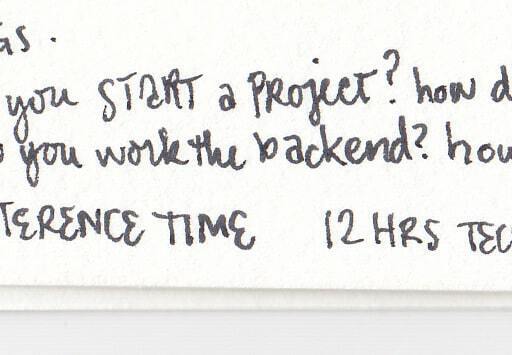 GS.
you START a PROJECT? how d
o you work the backend? how
TERENCE TIME 12 HRS TEC